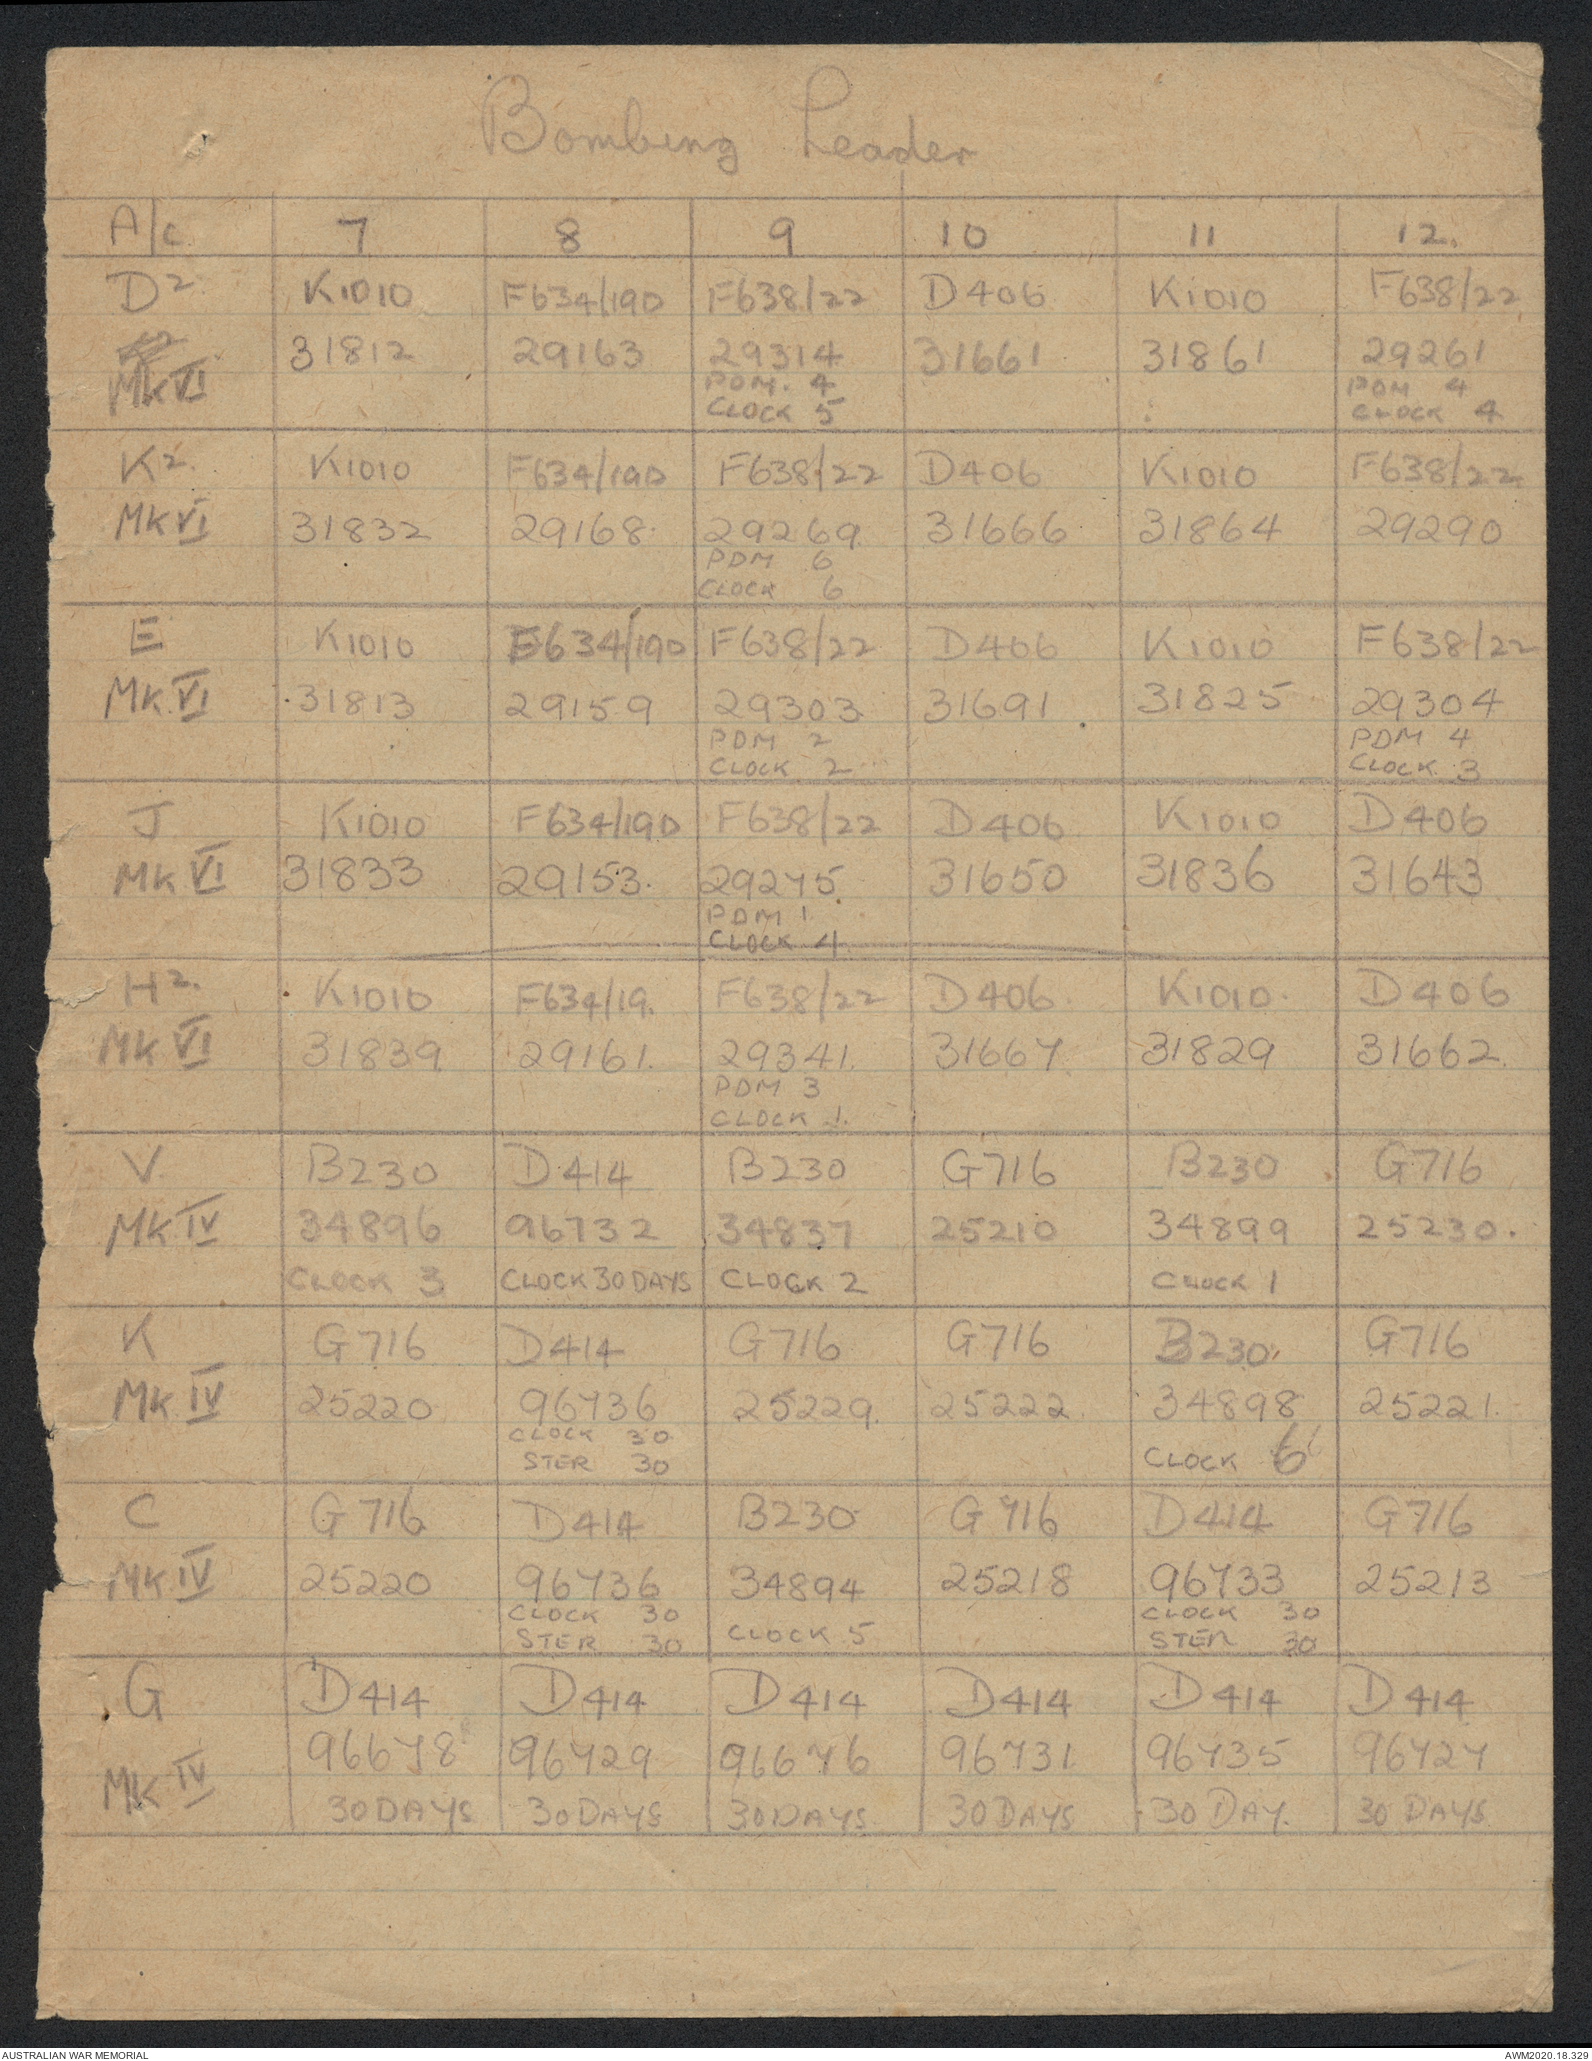 Bombing Leader
A/c 7 8 9 10 11 12.
D2 K1010 F634/190 F638/22 D406 K1010 F638/22
31812 29163 29314 31661 31861 29261
Mk VI PDM. 4 PDM 4
CLOCK 5 CLOCK 4
K2. K1010 F634/190 F638/22 D406 K1010 F638/22
Mk VI 31832 29168 29269 31666 31864 29290
PDM 6
CLOCK 6
E K1010 F634/190 F638/22 D406 K1010 F638/22
Mk VI 31813 29159 29303 31691 31825 29304
PDM 2 PDM 4
CLOCK 2 CLOCK 3
J K1010 F634/190 F638/22 D406 K1010 D406
Mk VI 31833 29153. 29275. 31650 31836 31643
PDM 1
CLOCK 4
H2. K1010 F634/19. F638/22 D406 K1010 D406
Mk VI 31839 29161. 29341. 31667 31829 31662.
PDM 3
CLOCK 1.
V B230 D414 B230 G716 B230 G716
Mk IV 34896 96732 34837 25210 34899 25230.
CLOCK 3 CLOCK 30 DAYS CLOCK 2 CLOCK 1
K G716 D414 G716 G716 B230 G716
Mk IV 25220 96736 25229. 25222 34898 25221.
CLOCK 30
STER 30 CLOCK 6
C G716 D414 B230 G716 D414 G716
Mk IV 25220 96736 34894 25218 96733 25213
CLOCK 30 CLOCK 30
STER 30 CLOCK 5 STER 30
G D414 D414 D414 D414 D414 D414
96678 96729 96676 96731 96735 96727
Mk IV 30 DAYS 30 DAYS 30 DAYS 30 DAYS 30 DAY. 30 DAYS
AUSTRALIAN WAR MEMORIAL AWM2020.18.329